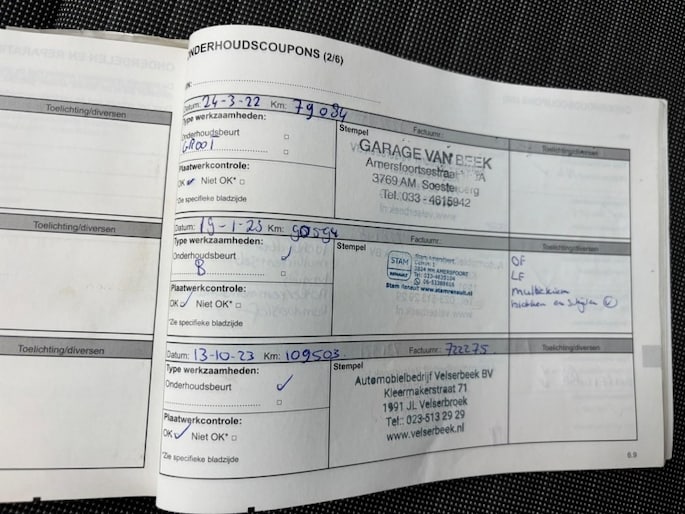 ONDERHOUDSCOUPONS (2/6)
Toelichting/diversen
Datum: 24-3-22 Km: 79034
Type werkzaamheden:
Onderhoudsbeurt
Plaatwerkcontrole:
OK Niet OK*
*Zie specifieke bladzijde
Stempel
Factuurnr.:
GARAGE VAN BEEK
Amersfoortsestraat
3769 AM Soesterberg
Tel. 033 - 4615942
Toelichting/diversen
Toelichting/diversen
Datum: 19-1-23 Km: 90594
Type werkzaamheden:
Onderhoudsbeurt
B
Plaatwerkcontrole:
OK Niet OK*
*Zie specifieke bladzijde
Stempel
Factuurnr.:
STAM
RENAULT
AMERSFOORT
www.stamrenault.nl
Toelichting/diversen
OF
LF
Toelichting/diversen
Datum: 13-10-23 Km: 109503
Type werkzaamheden:
Onderhoudsbeurt
Plaatwerkcontrole:
OK Niet OK*
*Zie specifieke bladzijde
Stempel
Factuurnr.: 722275
Automobielbedrijf Velserbeek BV
Kleermakerstraat 71
1991 JL Velserbroek
Tel.: 023-513 29 29
www.velserbeek.nl
Toelichting/diversen
6.9